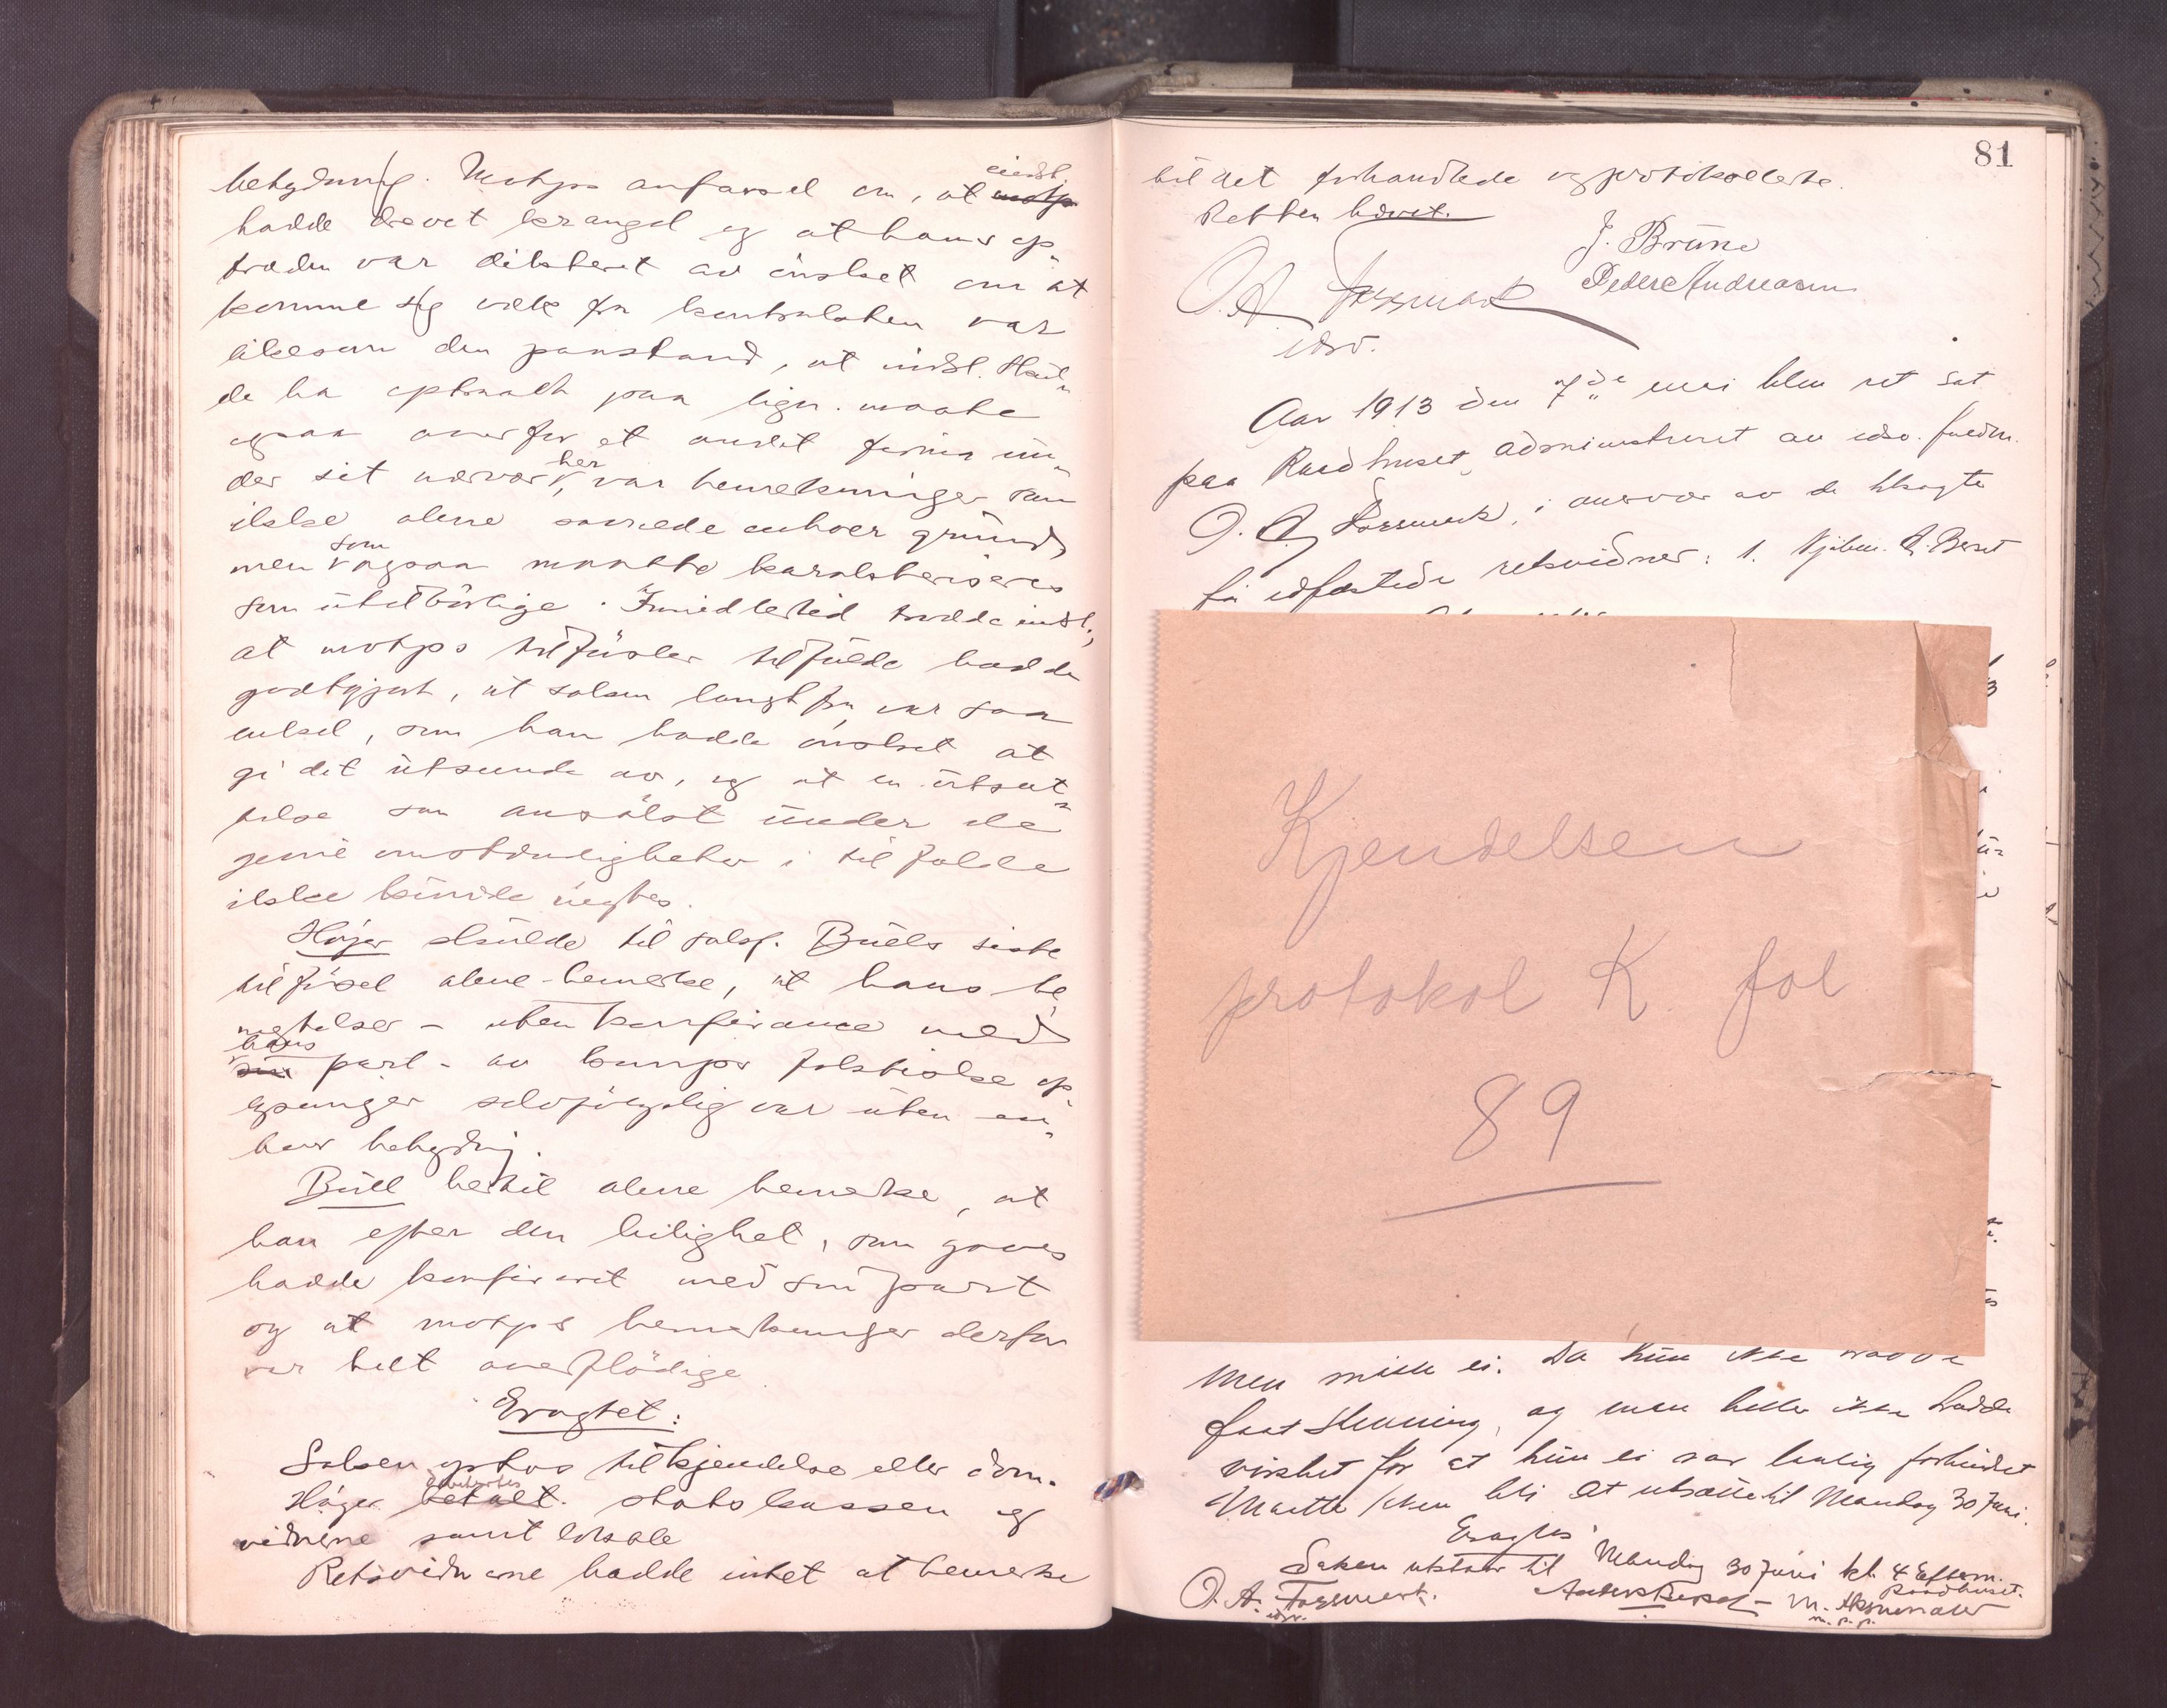 betydning. Motps anførsel om, at indst.
hadde drevet krangel og at hans op„
træden var dikteret av ønsket om at
komme sig væk fra kontrakten var
likesom den paastand, at indst. skul„
de ha optraadt paa lign. maate
ogsaa overfor et andet firma un„
der sit nærvær her, var bemerkninger som
ikke alene savnede enhver grund,
men som ogsaa maatte karakteriseres
som utilbørlige. Imidlertid trodde indst.,
at motps tilførsler tilfulde hadde
godtgjort, at saken langt fra var saa
enkel, som han hadde ønsket at
gi det utseende av, og at en utsæt„
telse som ansøkt under de
givne omstændigheter i tilfælde
ikke kunde negtes.
Høyer skulde til sakf. Bulls siste
tilførsel alene bemerke, at hans be
negtelser – uten konferance med
hans part – av komps faktiske op
lysninger selvfølgelig var uten en„
hver betydning.
Bull hertil alene bemerke, at
han efter den leilighet, som gaves
hadde konferert med sin part
og at motps bemerkninger derfor
var helt overflødige
Eragtet:
Saken optas til kjendelse eller dom.
Høyer debiteres statskassen og
vidnene samt lokale
Retsvidnerne hadde intet at bemerke
81
til det forhandlede og protokollerte.
Retten hævet.
J. Brüno
O. A. Forsmark Peder Andreasen
edsv.
Aar 1913 den 7de mai blev ret sat
paa Raadhuset, administreret av edsv. fuldm.
O. A. Forsmark, i overvær av de tilsagte
edfæstede retsvidner: 1.
Kjendelsen
protokol K fol
89
men ei. Da hun ikke
faat stevning, og man heller ikke hadde
vished for at hun ei var lovlig forhindret
maatte saken bli at utsætte til Mandag 30 Juni.
Eragtes
Saken utstaar til Mandag 30 juni kl. 4 Efterm.
Raadhuset.
O. A. Forsmark.
edsv.
m. p. p.